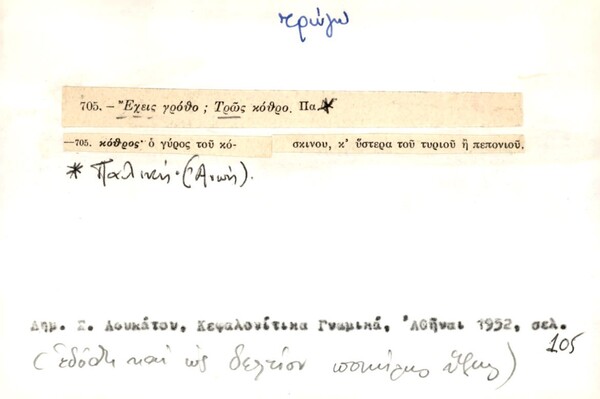 τρώγω
705. – Ἔχεις γρόθο ; Τρῶς κόθρο. Πα*
—705. κόθρος· ὁ γύρος τοῦ κό- σκινου, κ' ὕστερα τοῦ τυριοῦ ἢ πεπονιοῦ.
* Παλικὴ· (Ἀνωή).
Δημ. Σ. Λουκάτου, Κεφαλονίτικα Γνωμικά, Ἀθῆναι 1952, σελ.
105
(ἐδόθη καὶ ὡς δελτίον ποικίλης ὕλης)